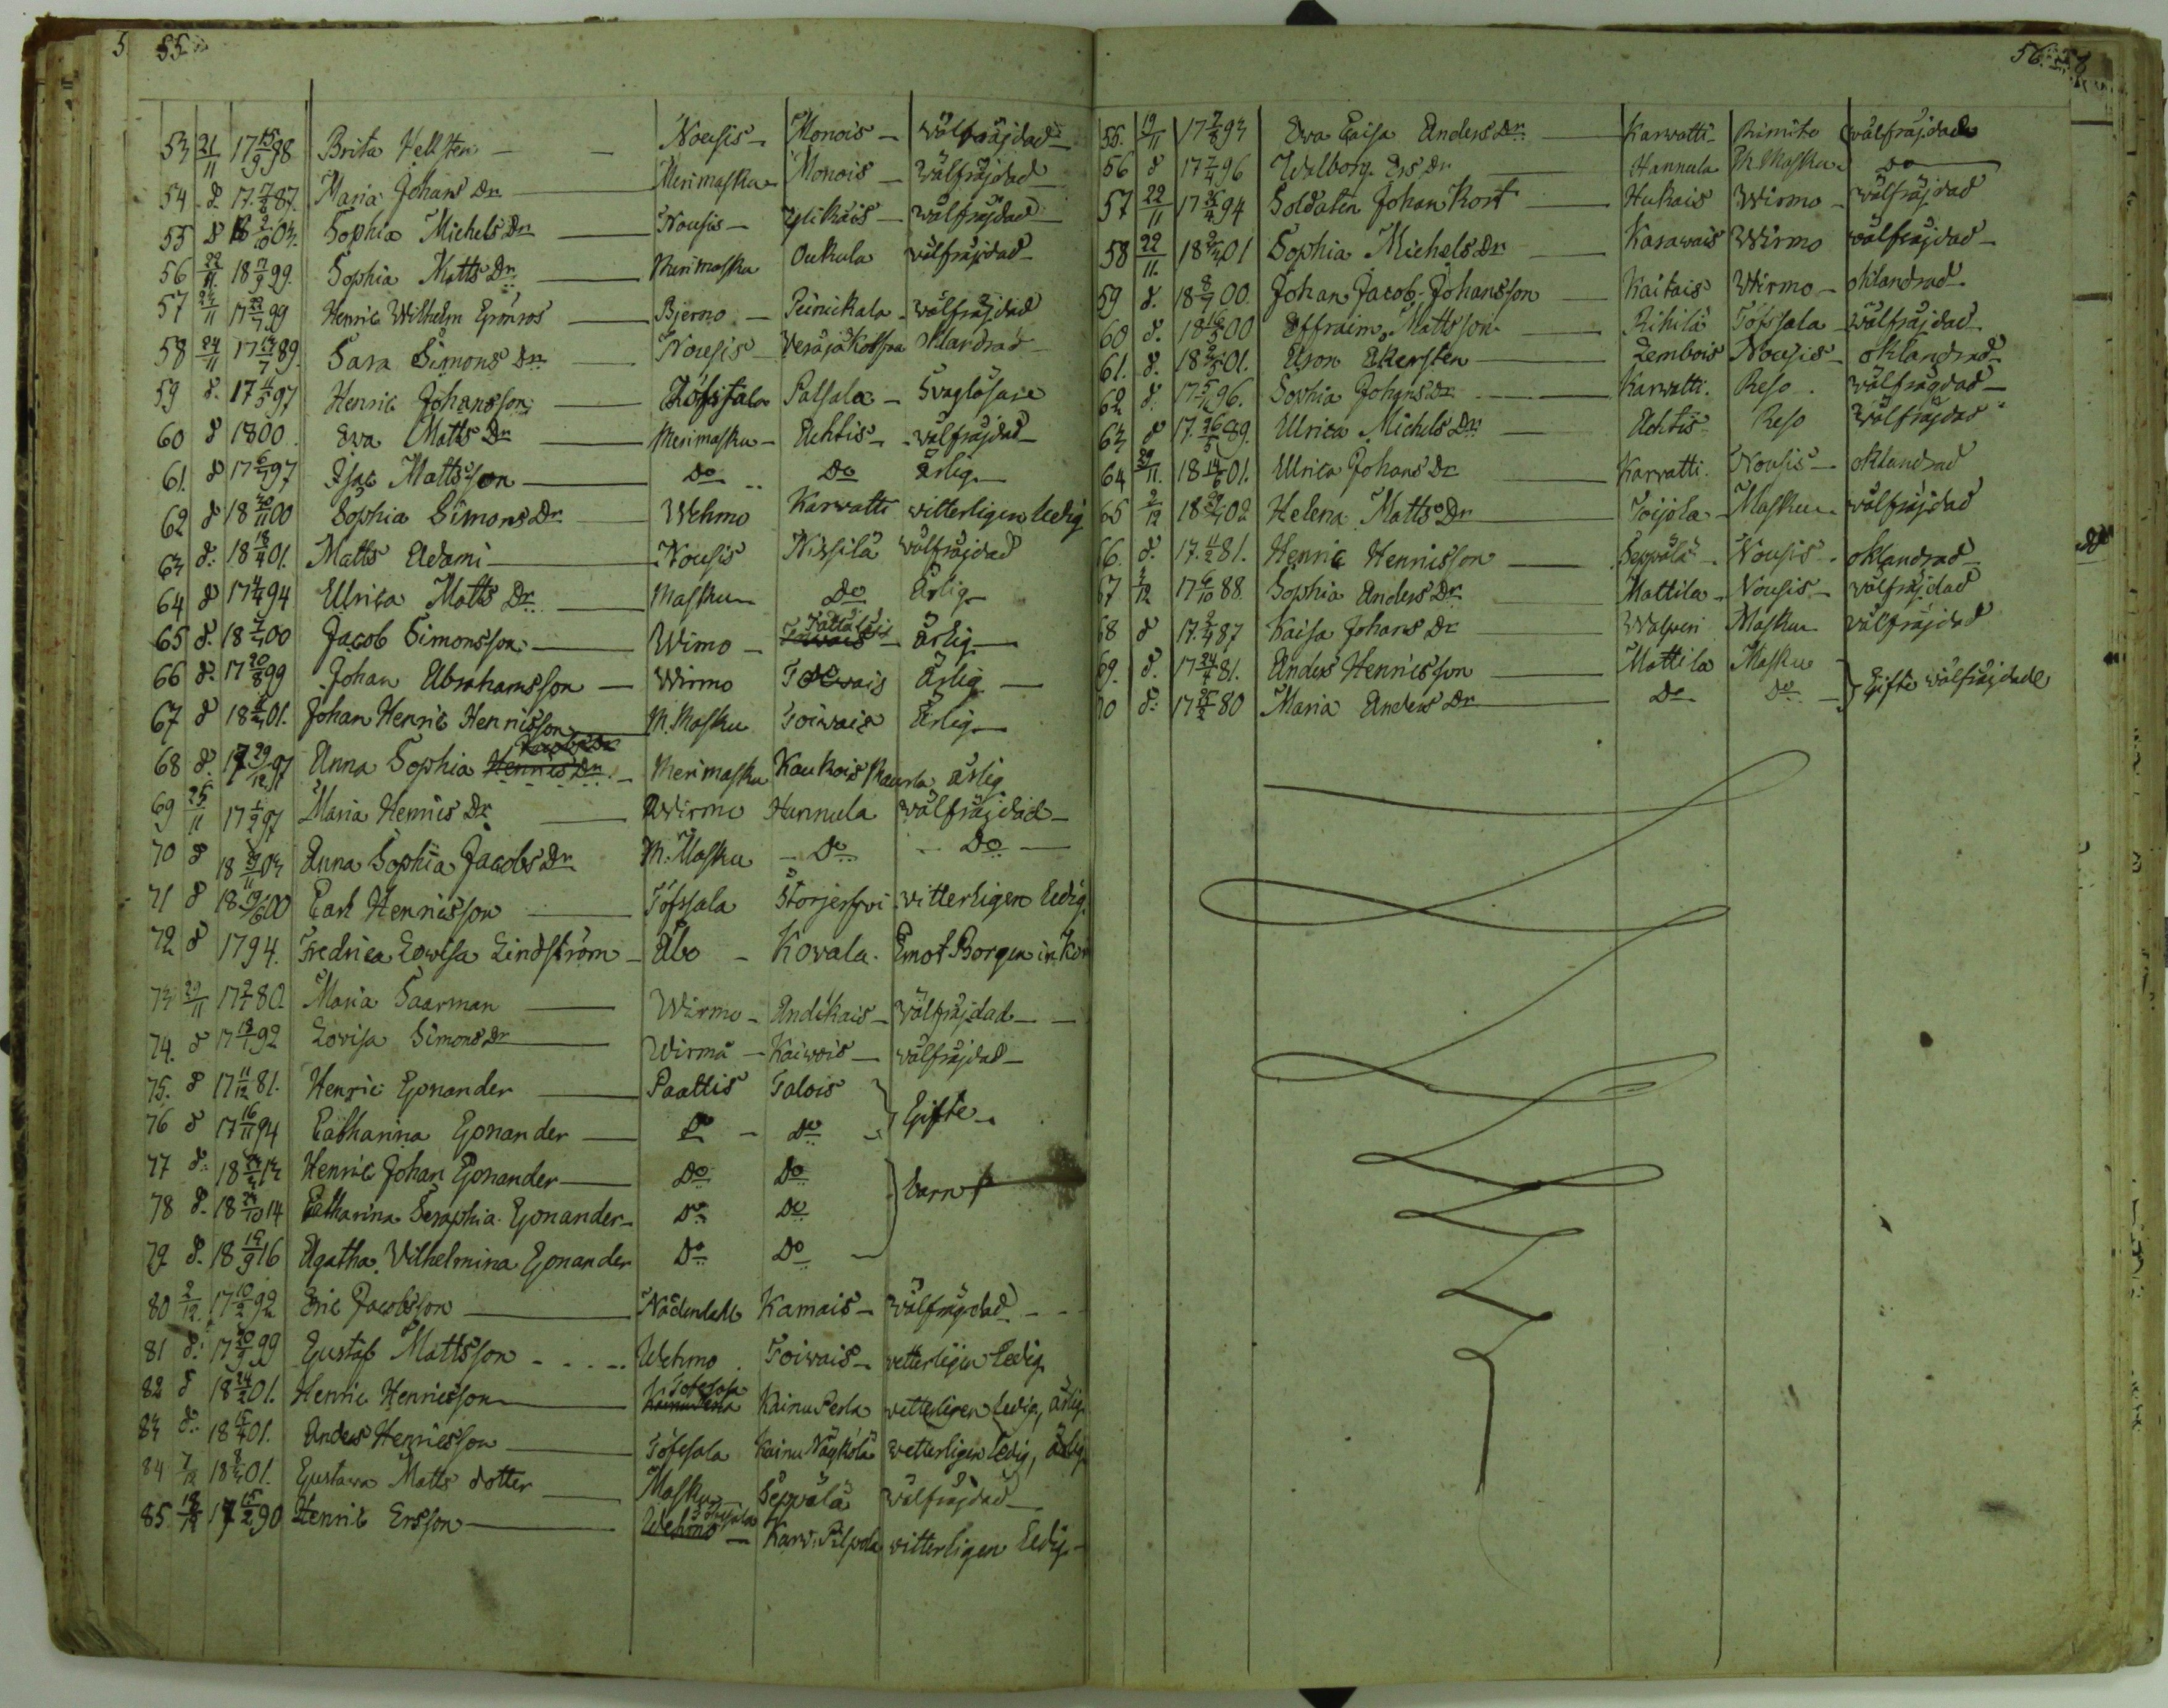 55
53 21/11 17 15/9 98 Brita Hellsten Nousis Monois wälfräjdad
54 d. 17 7/6 87. Maria Johans Dr Merimasku Monois wälfräjdad
55 d 18 2/10 03. Sophia Michels Dr Nousis Ylikäis wälfräjdad
56 22/11 18 99. Sophia Matts Dr Merimasku Oukula wälfräjdad
57 24/11 17 22/7 99 Henric Wilhelm Grönros Bjerno wälfräjdad
58 24/11 17 89. Sara Simons Dr Nousis oklandrad
59 d. 17 97 Henric Johansson Töfsala Palsala Svaglösare
60 d 1800. Ewa Matts Dr Merimasku Achtis wälfräjdad
61. d 17 6/7 97 Isac Mattsson Do Do ärlig
62 d 18 20/11 00 Sophia Simons Dr Wehmo Karwatti witterligen ledig
63 d. 18 18/4 01. Matts Adami Nousis Nissilä wälfräjdad
64 d 17 94 Ulrica Matts Dr Masku Do Ärlig
65 d. 18 00 Jacob Simonsson Wirmo ärlig
66 d. 17 20/8 99 Johan Abrahamsson Wirmo Toiwais Ärlig
67 d 18 01. Johan Henric Henricsson M. Masku Toiwais Ärlig
68 d. 17 29/12 97 Anna Sophia Henrics Dr. Merimasku Kaukois ärlig
69 25/11 17 1/2 97 Maria Henrics Dr Wirmo Hannula wälfräjdad
70 d 18 03 Anna Sophia Jacobs Dr M. Masku Do Do
71 d 18 19/6 00 Carl Henricsson Töfssala Storjerfvi witterligen ledig.
72 d 1794. Fredrica Lovisa Lindström Åbo Kovala. Emot Borgen
73 29/11 17 80. Maria Saarman Wirmo Andikais wälfräjdad
74. d 17 18/1 92 Lovisa Simons Dr Wirmå Kaiwois wälfräjdad
75. d 17 11/12 81. Henric Gonander Paattis Talois
76 d 17 16/11 94 Catharina Gonander Do Do Gifte
77 d. 18 13 Henric Johan Gonander Do Do
78 d. 18 10 14 Catharina Seraphia Gonander Do Do barn
79 d. 18 19/9 16 Agatha Vilhelmina Gonander Do Do
80 2/12. 17 10/2 92 Eric Jacobsson Nådendahl Kamais wälfräjdad
81 d. 17 20/9 99 Gustaf Mattsson Wehmo Toiwais wetterligen ledig
82 d 18 24/2 01. Henric Henricsson Töfsala Kainu Perla wetterligen ledig, ärlig.
83 d. 18 15/4 01. Anders Henricsson Töfssala Kainu Näykölä wetterligen ledig, ärlig
84 7/12 18 01. Gustava Matts dotter Masku Seppälä wälfräjdad
85. 18/12 17 15/2 90 Henric Ersson Wehmo Töfsala Karw. Pilpola witterligen ledig
56.
55. 19/11 17 93 Ewa Caisa Anders Dr Karwatti Rimito wälfräjdad
56 d 17 7/4 96 Walborg Ers Dr Hannula M Masku Do
57 22/11 17 26/4 94 Soldaten Johan Kort Hukais Wirmo wälfräjdad
58 22/11. 18 01 Sophia Michels Dr Kasawais Wirmo wälfräjdad
59 d. 18 8/7 00. Johan Jacob Johansson Kaitais Wirmo oklandrad
60 d. 18 16/5 00 Effraim Mattsson Rihilä Töfssala wälfräjdad
61. d. 18 01. Aron Akersten Zembois Nousis oklandrad
62 d. 17 96. Sophia Johans Dr Karwatti. Reso. wälfrägdad
63 d 17. 26/5 89. Ulrica Michels Dr Achtis Reso wälfräjdad
64 29/11. 18 14/6 01. Ulrica Johans Dr Karwatti. Nousis oklandrad
65 2/12 18 02 Helena Matts Dr Toijola Masku wälfräjdad
66. d. 17. 11/2 81. Henric Henricsson Seppälä Nousis oklandrad
67 2/12 17 88. Sophia Anders Dr Mattila Nousis wälfräjdad
68 d 17. 87 Kaisa Johans Dr Walperi Masku wälfräjdad
69. d. 17 24/4 81. Anders Henricsson Mattila Masku
70 d. 17 25/2 80 Maria Anders Dr Do Do Gifte wälfräjdade